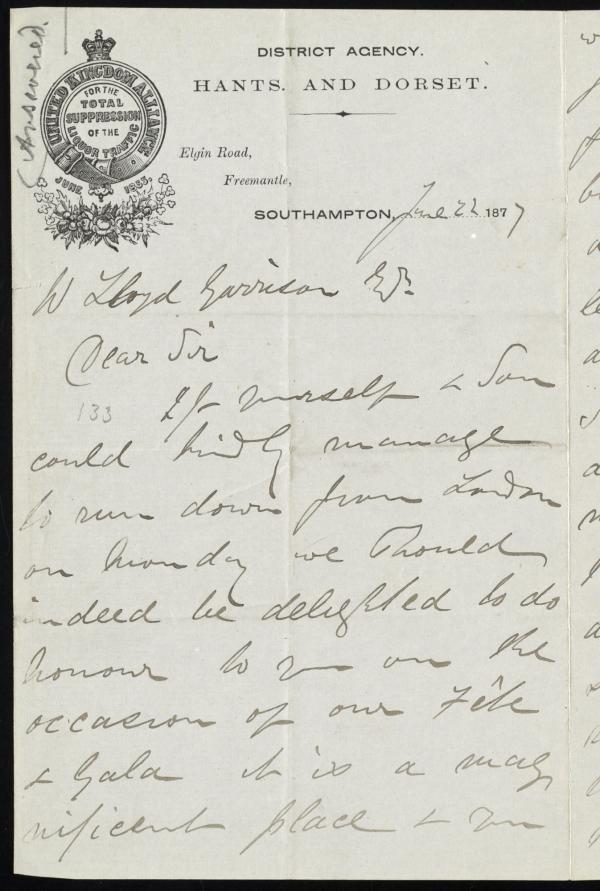 (Answered.
UNITED KINGDOM ALLIANCE
FOR THE
TOTAL
SUPPRESSION
OF THE
LIQUOR TRAFFIC
JUNE 1853.
DISTRICT AGENCY.
HANTS. AND DORSET.
Elgin Road,
Freemantle,
SOUTHAMPTON, June 22 1877
W Lloyd Garrison Esq.
Dear Sir
133
If yourself & Son
could kindly manage
to run down from London
on Monday we should
indeed be delighted to do
honour to you on the
occasion of our Fête
& Gala it is a mag
nificent place & you